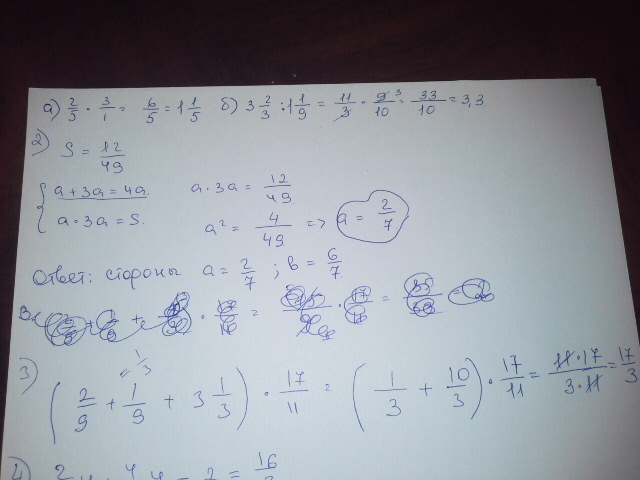 а) 2/5 · 3/1 = 6/5 = 1 1/5 б) 3 2/3 : 1 1/9 = 11/3 · 9/10 ³ = 33/10 = 3,3
2) S = 12/49
{ a + 3a = 4a a · 3a = 12/49
a · 3a = S. a² = 4/49 => a = 2/7
Ответ: стороны a = 2/7 ; b = 6/7
= 1/3
3) (2/9 + 1/9 + 3 1/3) · 17/11 = (1/3 + 10/3) · 17/11 = 11·17/3·11 = 17/3
4)